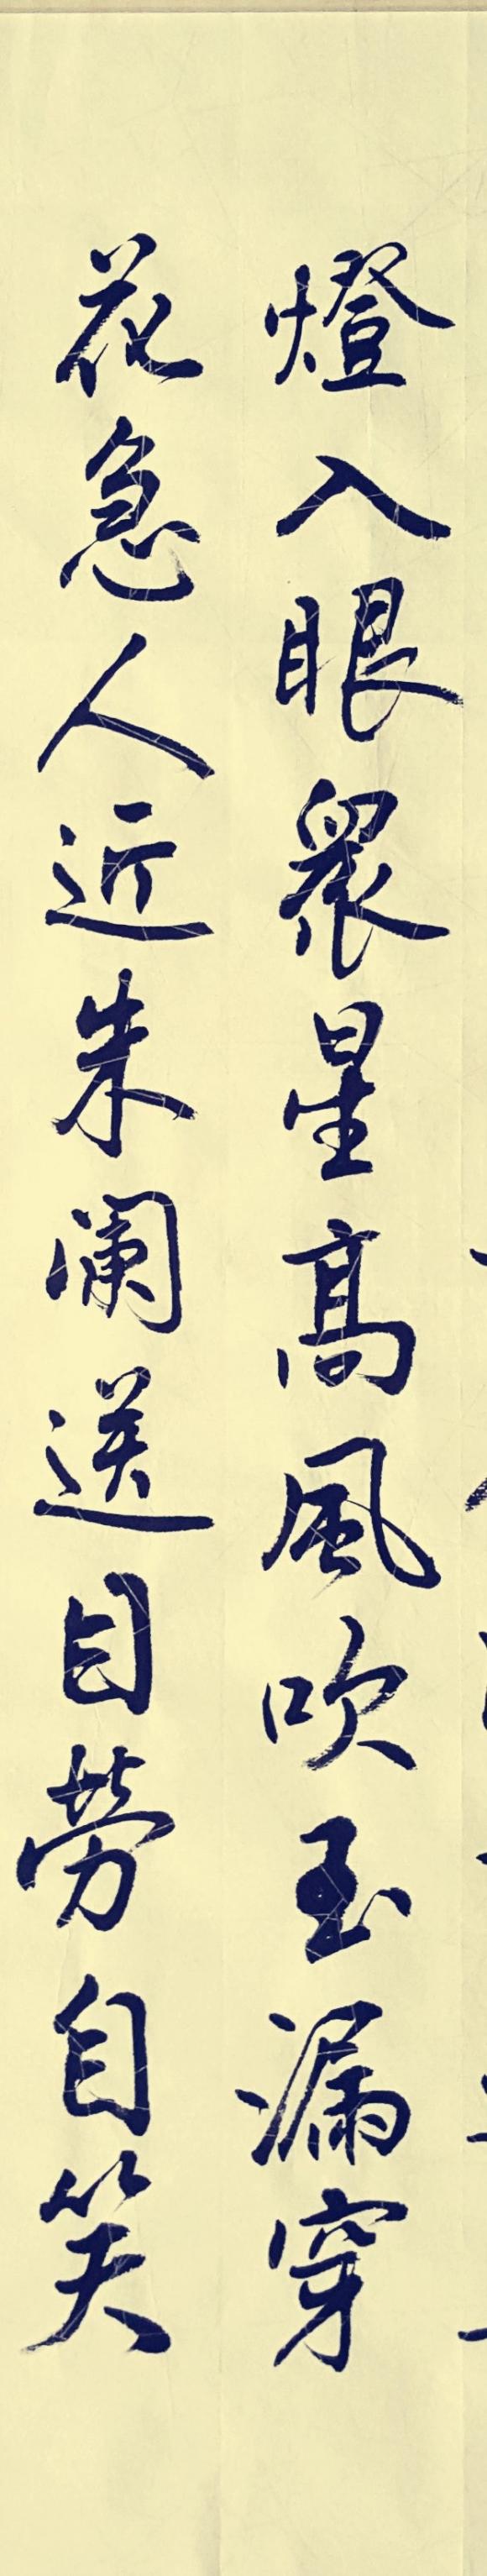 燈入眼眾星高風吹玉漏穿
花急人近朱闌送目勞自笑